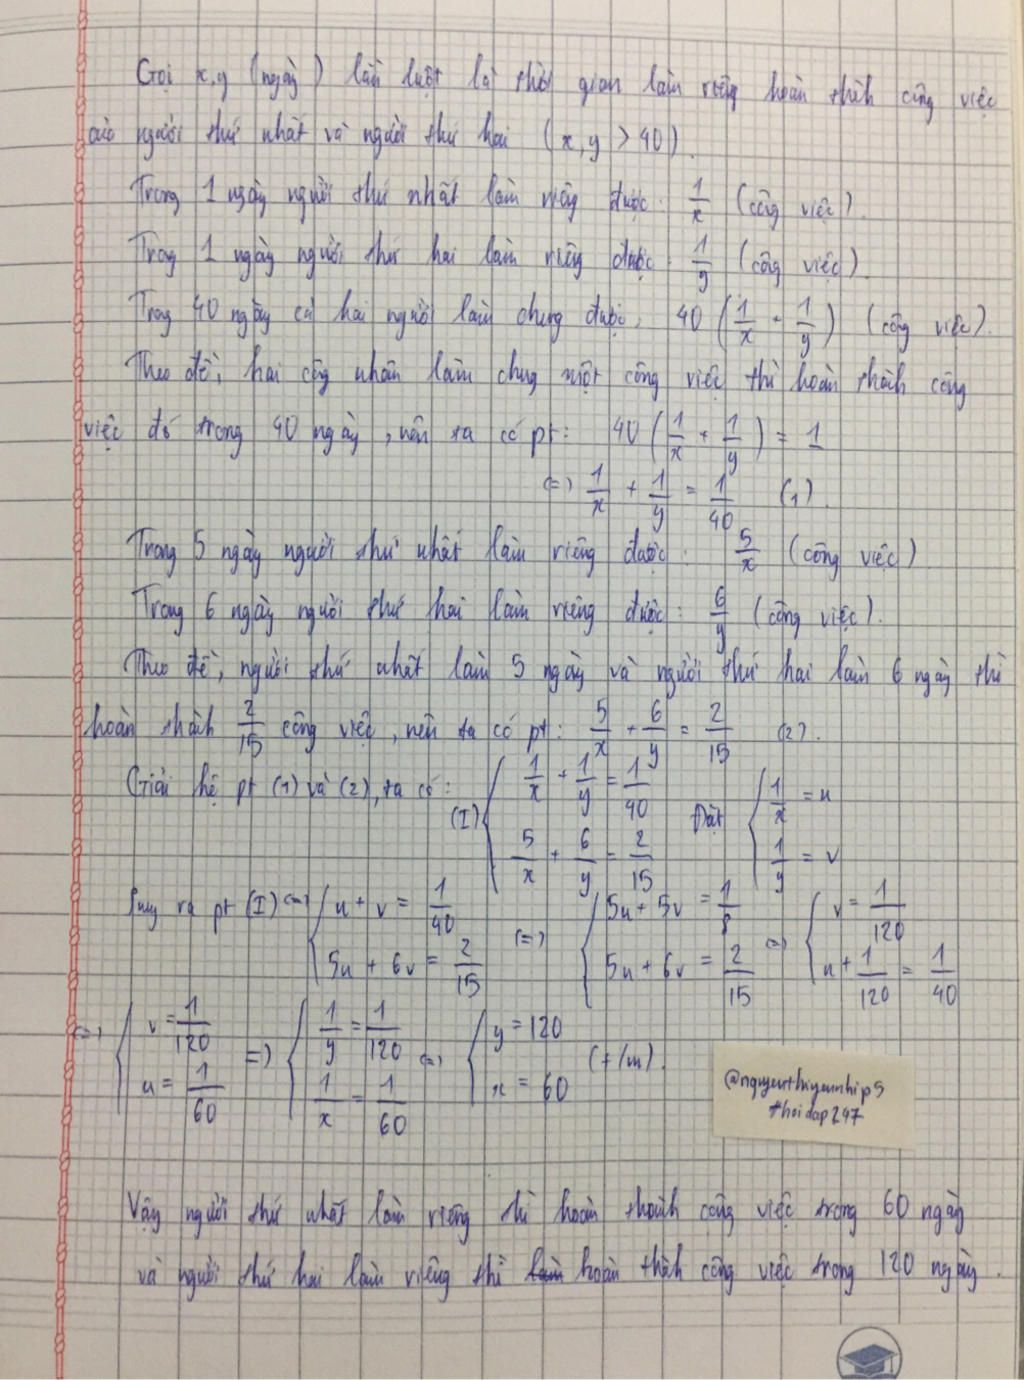 Gọi x,y (ngày) lần lượt là thời gian làm riêng hoàn thành công việc
của người thứ nhất và người thứ hai (x,y > 40).
Trong 1 ngày người thứ nhất làm riêng được: 1/x (công việc).
Trong 1 ngày người thứ hai làm riêng được: 1/y (công việc).
Trong 40 ngày cả hai người làm chung được: 40 (1/x + 1/y) (công việc).
Theo đề, hai công nhân làm chung một công việc thì hoàn thành công
việc đó trong 40 ngày, nên ta có pt: 40 (1/x + 1/y) = 1
(=) 1/x + 1/y = 1/40 (1).
Trong 5 ngày người thứ nhất làm riêng được: 5/x (công việc).
Trong 6 ngày người thứ hai làm riêng được: 6/y (công việc).
Theo đề, người thứ nhất làm 5 ngày và người thứ hai làm 6 ngày thì
hoàn thành 2/15 công việc, nên ta có pt: 5/x + 6/y = 2/15 (2).
Giải hệ pt (1) và (2), ta có: (I) { 1/x + 1/y = 1/40 Đặt { 1/x = u
5/x + 6/y = 2/15 1/y = v
Suy ra pt (I) (=) { u + v = 1/40 (=) { 5u + 5v = 1/8 (=) { v = 1/120
5u + 6v = 2/15 5u + 6v = 2/15 u + 1/120 = 1/40
(=) { v = 1/120 =) { 1/y = 1/120 (=) { y = 120 (t/m).
u = 1/60 1/x = 1/60 x = 60
@nguyenthiyennhip5
hoidap247
Vậy người thứ nhất làm riêng thì hoàn thành công việc trong 60 ngày
và người thứ hai làm riêng thì hoàn thành công việc trong 120 ngày.